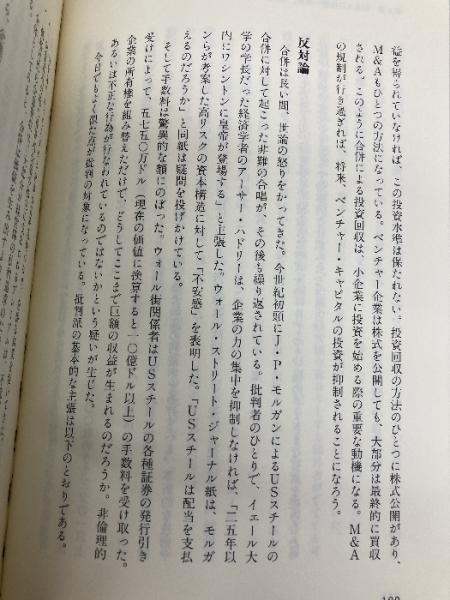 益を得られていなければ、この投資水準は保たれない。投資回収の方法のひとつに株式公開があり、
M&Aもひとつの方法になっている。ベンチャー企業は株式を公開しても、大部分は最終的に買収
される。このように合併による投資回収は、小企業に投資を始める際の重要な動機になる。M&A
の規制が行き過ぎれば、将来、ベンチャー・キャピタルの投資が抑制されることになろう。
反対論
合併は長い間、世論の怒りをかってきた。今世紀初頭にJ・P・モルガンによるUSスチールの
合併に対して起こった非難の合唱が、その後も繰り返されている。批判者のひとりで、イェール大
学の学長だった経済学者のアーサー・ハドリーは、企業の力の集中を抑制しなければ、「二五年以
内にワシントンに皇帝が登場する」と主張した。ウォール・ストリート・ジャーナル紙は、モルガ
ンらが考案した高リスクの資本構造に対して「不安感」を表明した。「USスチールは配当を支払
えるのだろうか」と同紙は疑問を投げかけている。
そして手数料は驚異的な額にのぼった。ウォール街関係者はUSスチールの各種証券の発行引き
受けによって、五七五〇万ドル（現在の価値に換算すると一〇億ドル以上）の手数料を受け取った。
企業の所有権を組み替えただけで、どうしてここまで巨額の収益が生まれるのだろうか。非倫理的
あるいは不正な行為が行なわれているのではないかという疑いが生じた。
今日でもよく似た点が批判の対象になっている。批判派の基本的な主張は以下のとおりである。